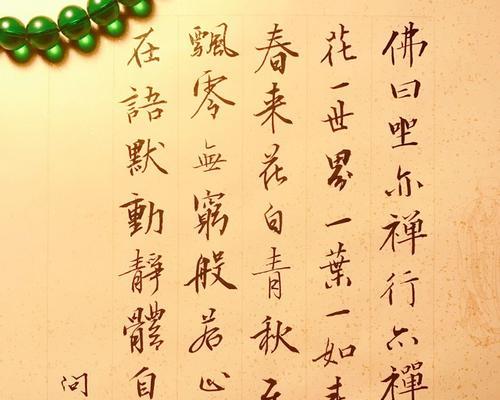 佛曰坐亦禪行亦禪
花一世界一葉一如
春来花白青秋
飄零無窮般若心
在語默動靜體自
問